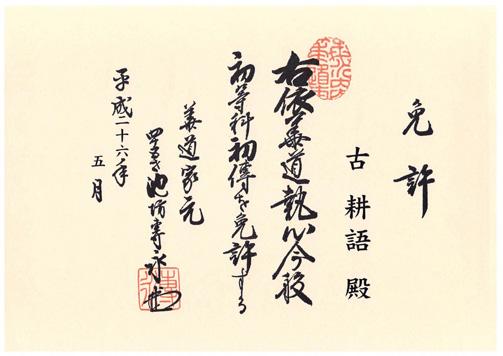 免許
古耕語殿
右依華道執心今般
初等科初傳を免許する
華道家元
四十五世池坊専永
平成二十六年
五月